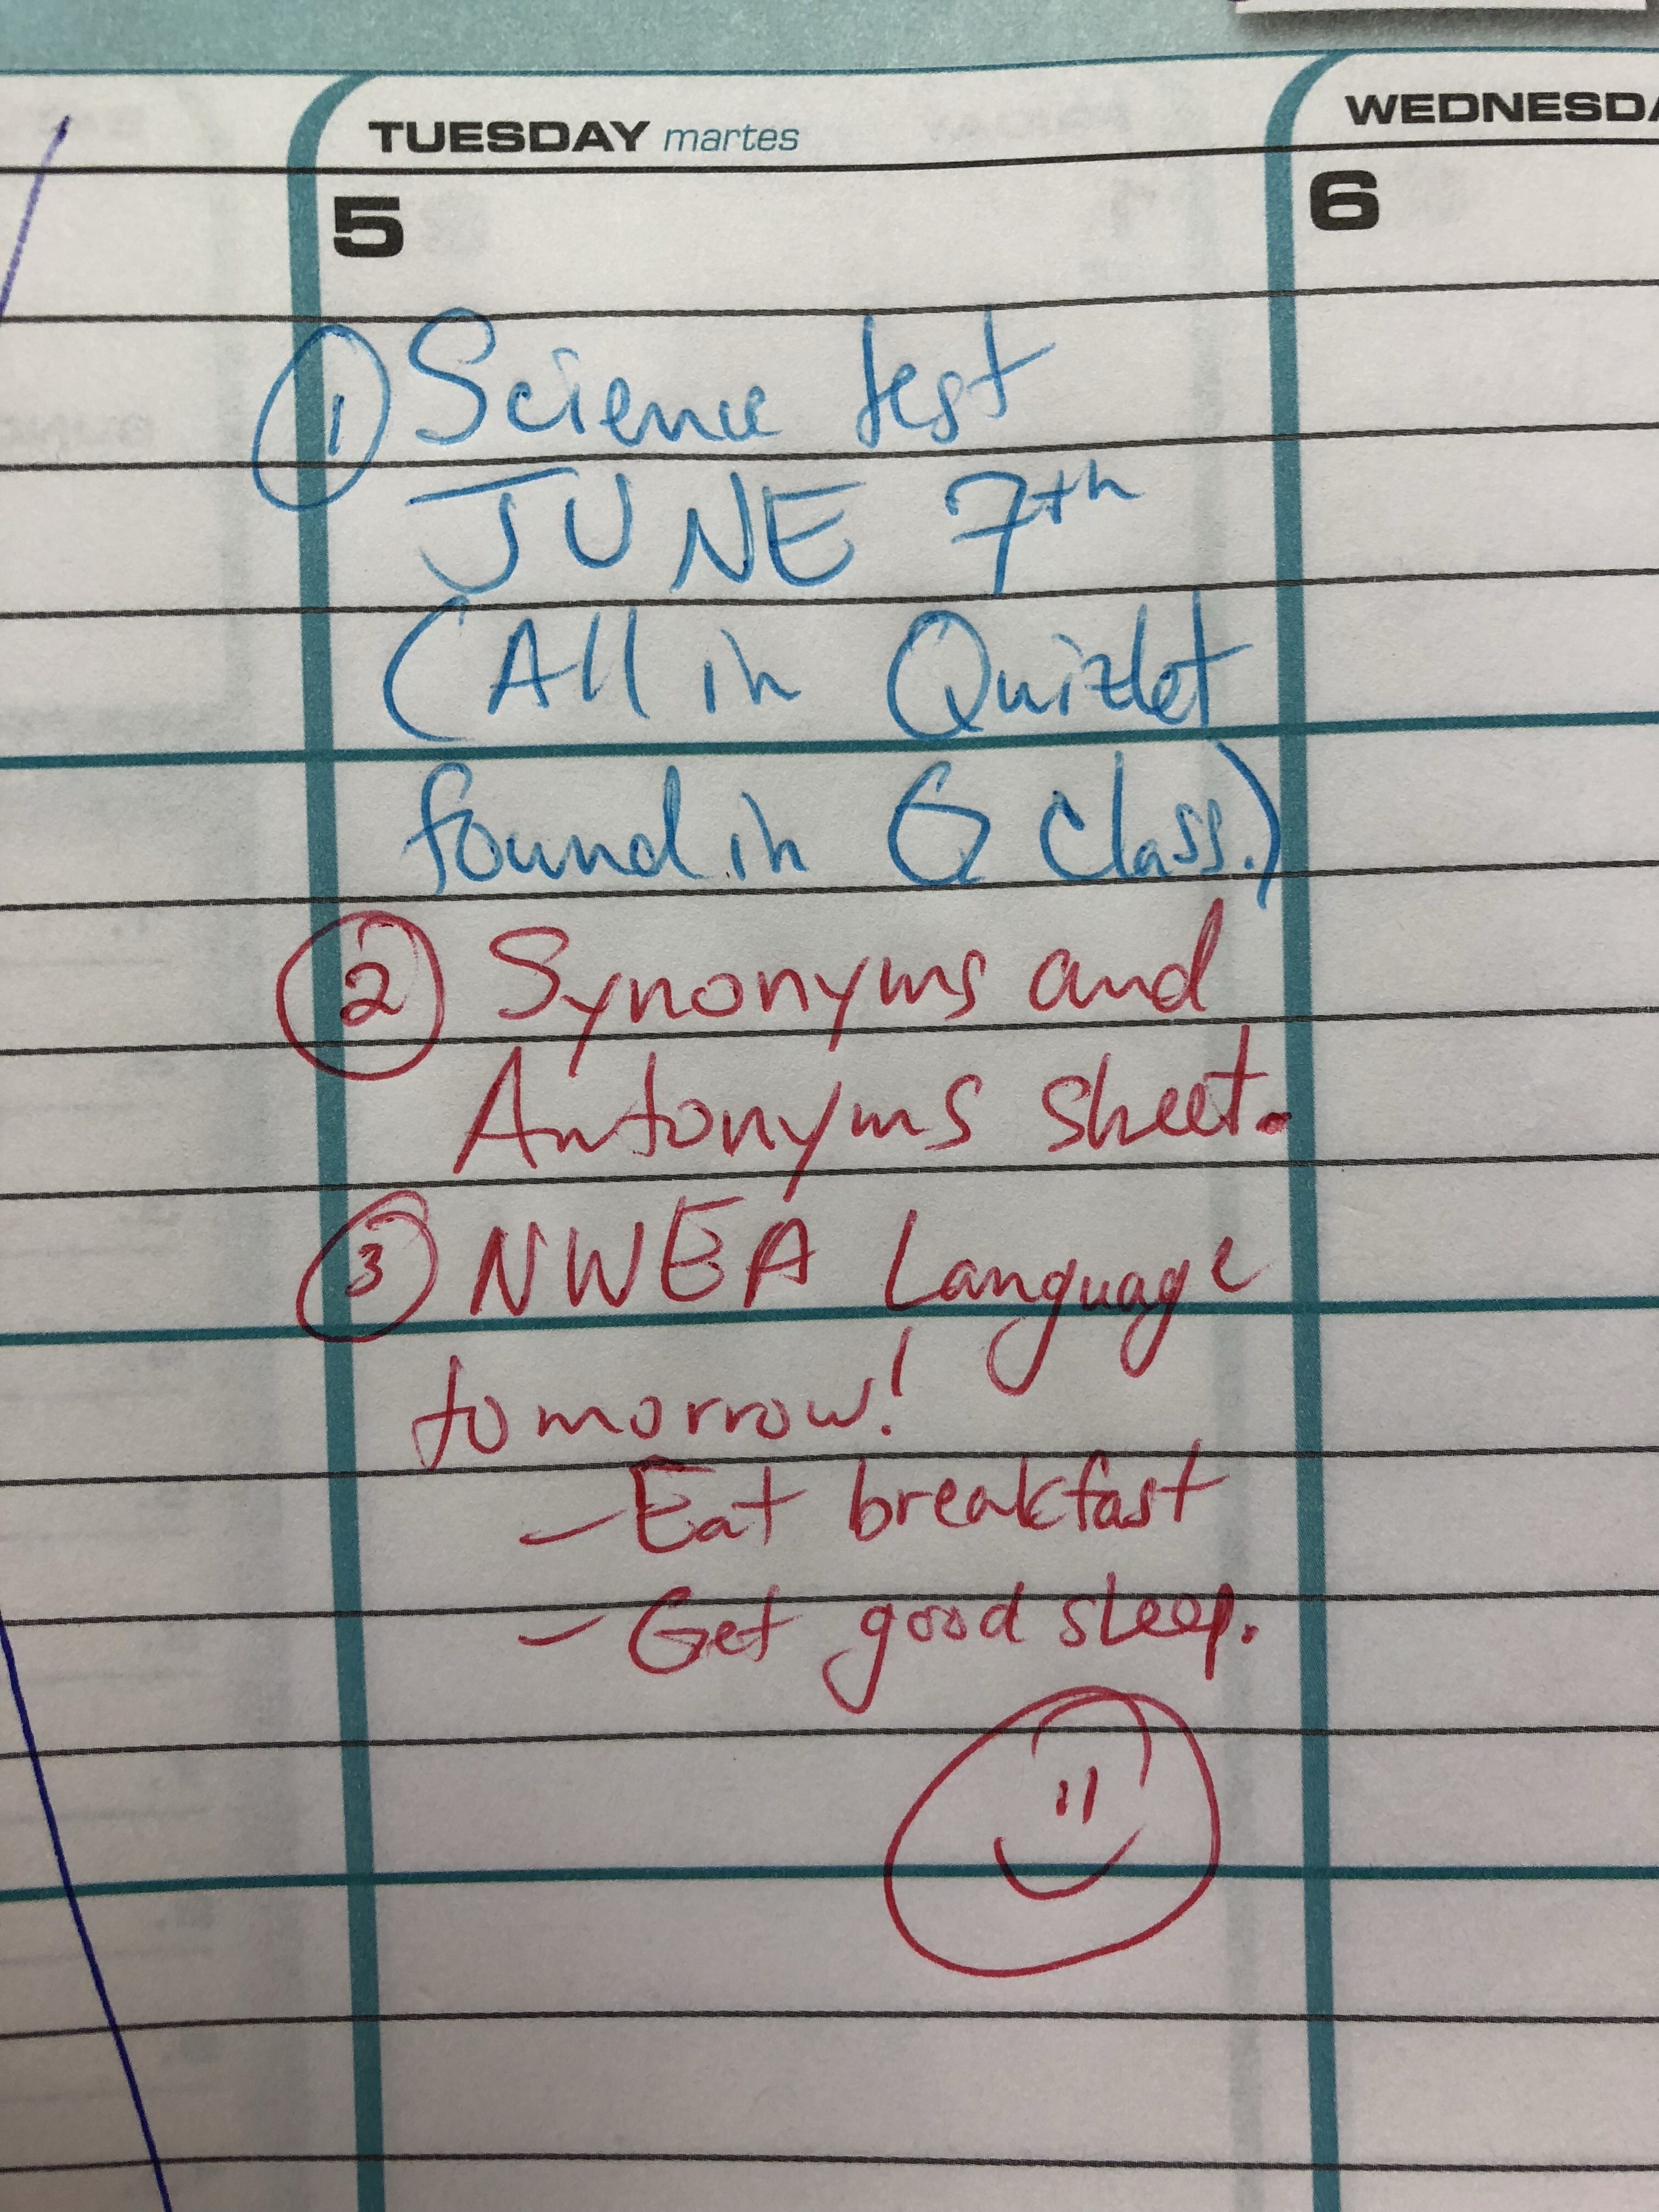 TUESDAY martes
WEDNESDA
5
6
1 Science test
JUNE 7th
(All in Quizlet
found in G Class.)
2 Synonyms and
Antonyms sheet.
3 NWEA Language
tomorrow!
- Eat breakfast
- Get good sleep.